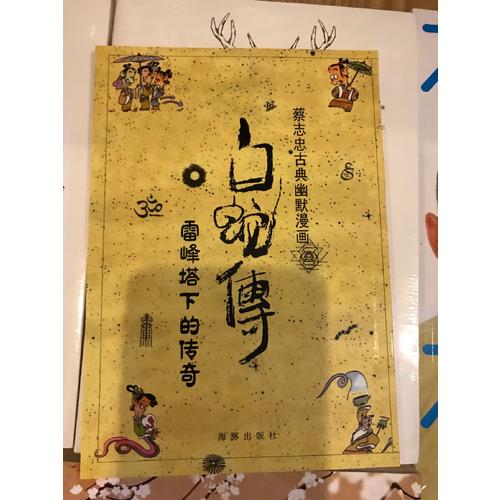 蔡志忠古典幽默漫画
白蛇傳
雷峰塔下的传奇
海豚出版社